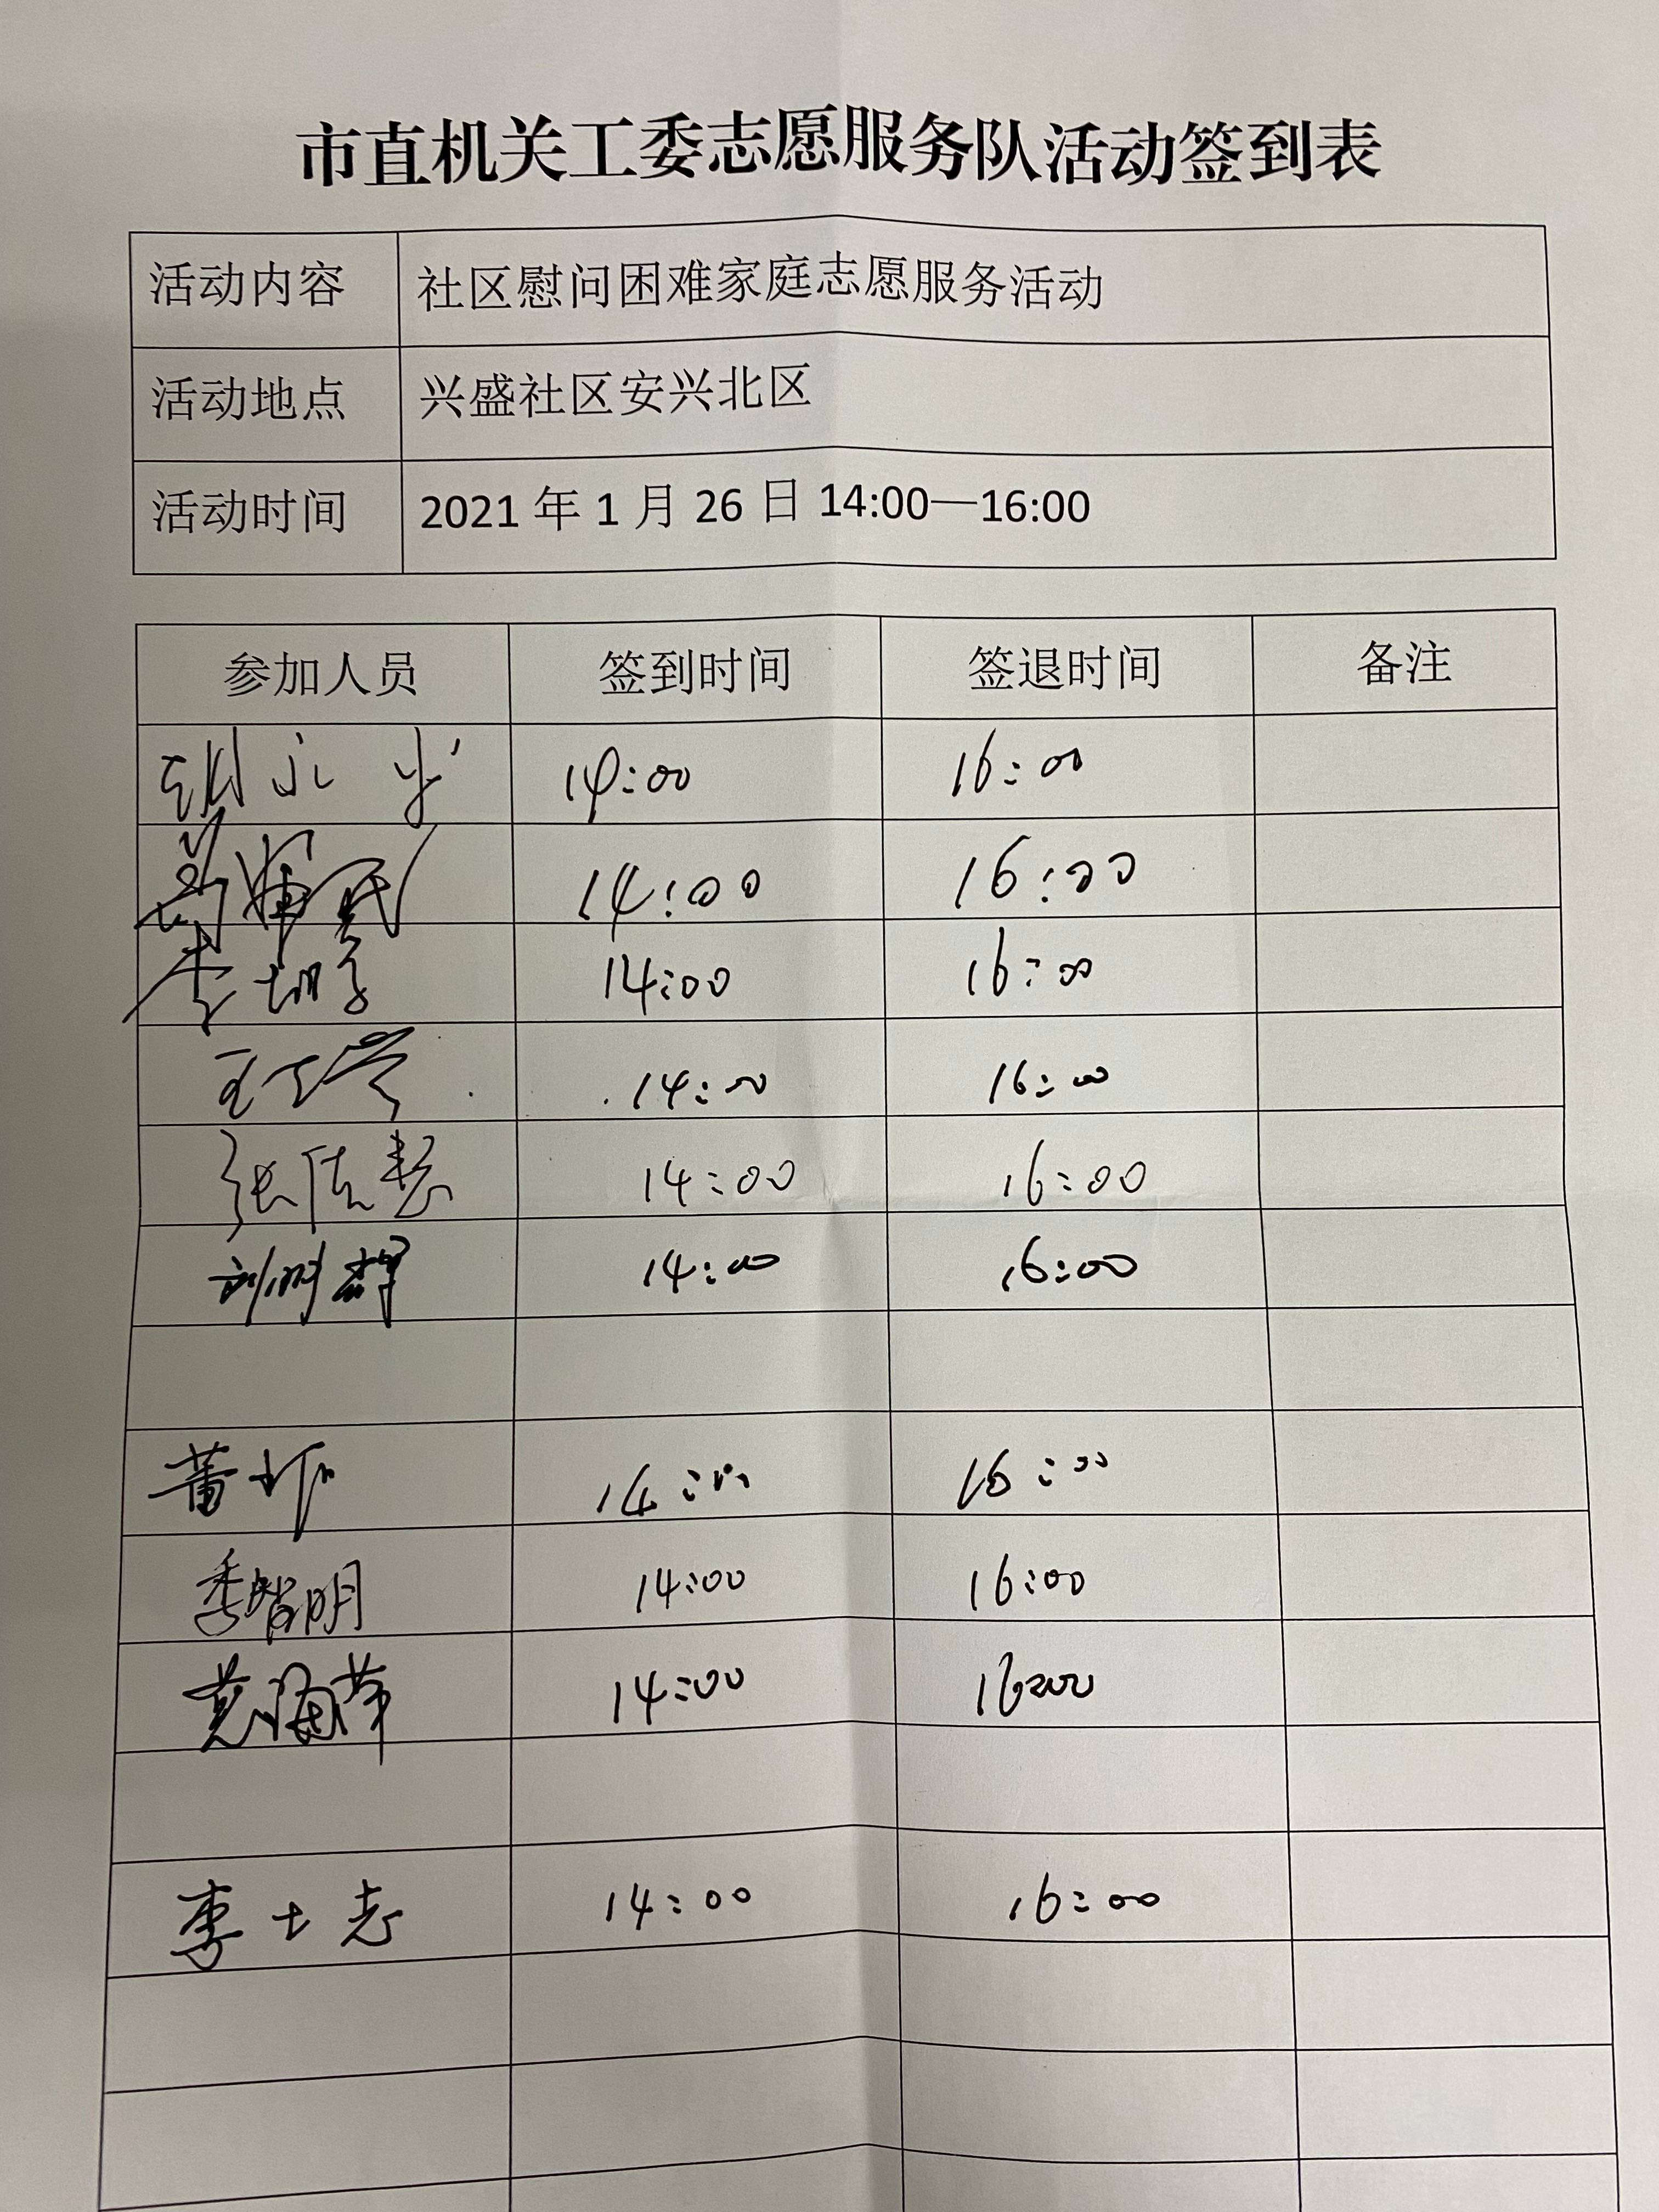 市直机关工委志愿服务队活动签到表
活动内容 社区慰问困难家庭志愿服务活动
活动地点 兴盛社区安兴北区
活动时间 2021 年 1 月 26 日 14:00—16:00
参加人员 签到时间 签退时间 备注
14:00 16:00
14:00 16:00
14:00 16:00
14:00 16:00
14:00 16:00
14:00 16:00
14:00 16:00
季智明 14:00 16:00
14:00 16:00
李士志 14:00 16:00